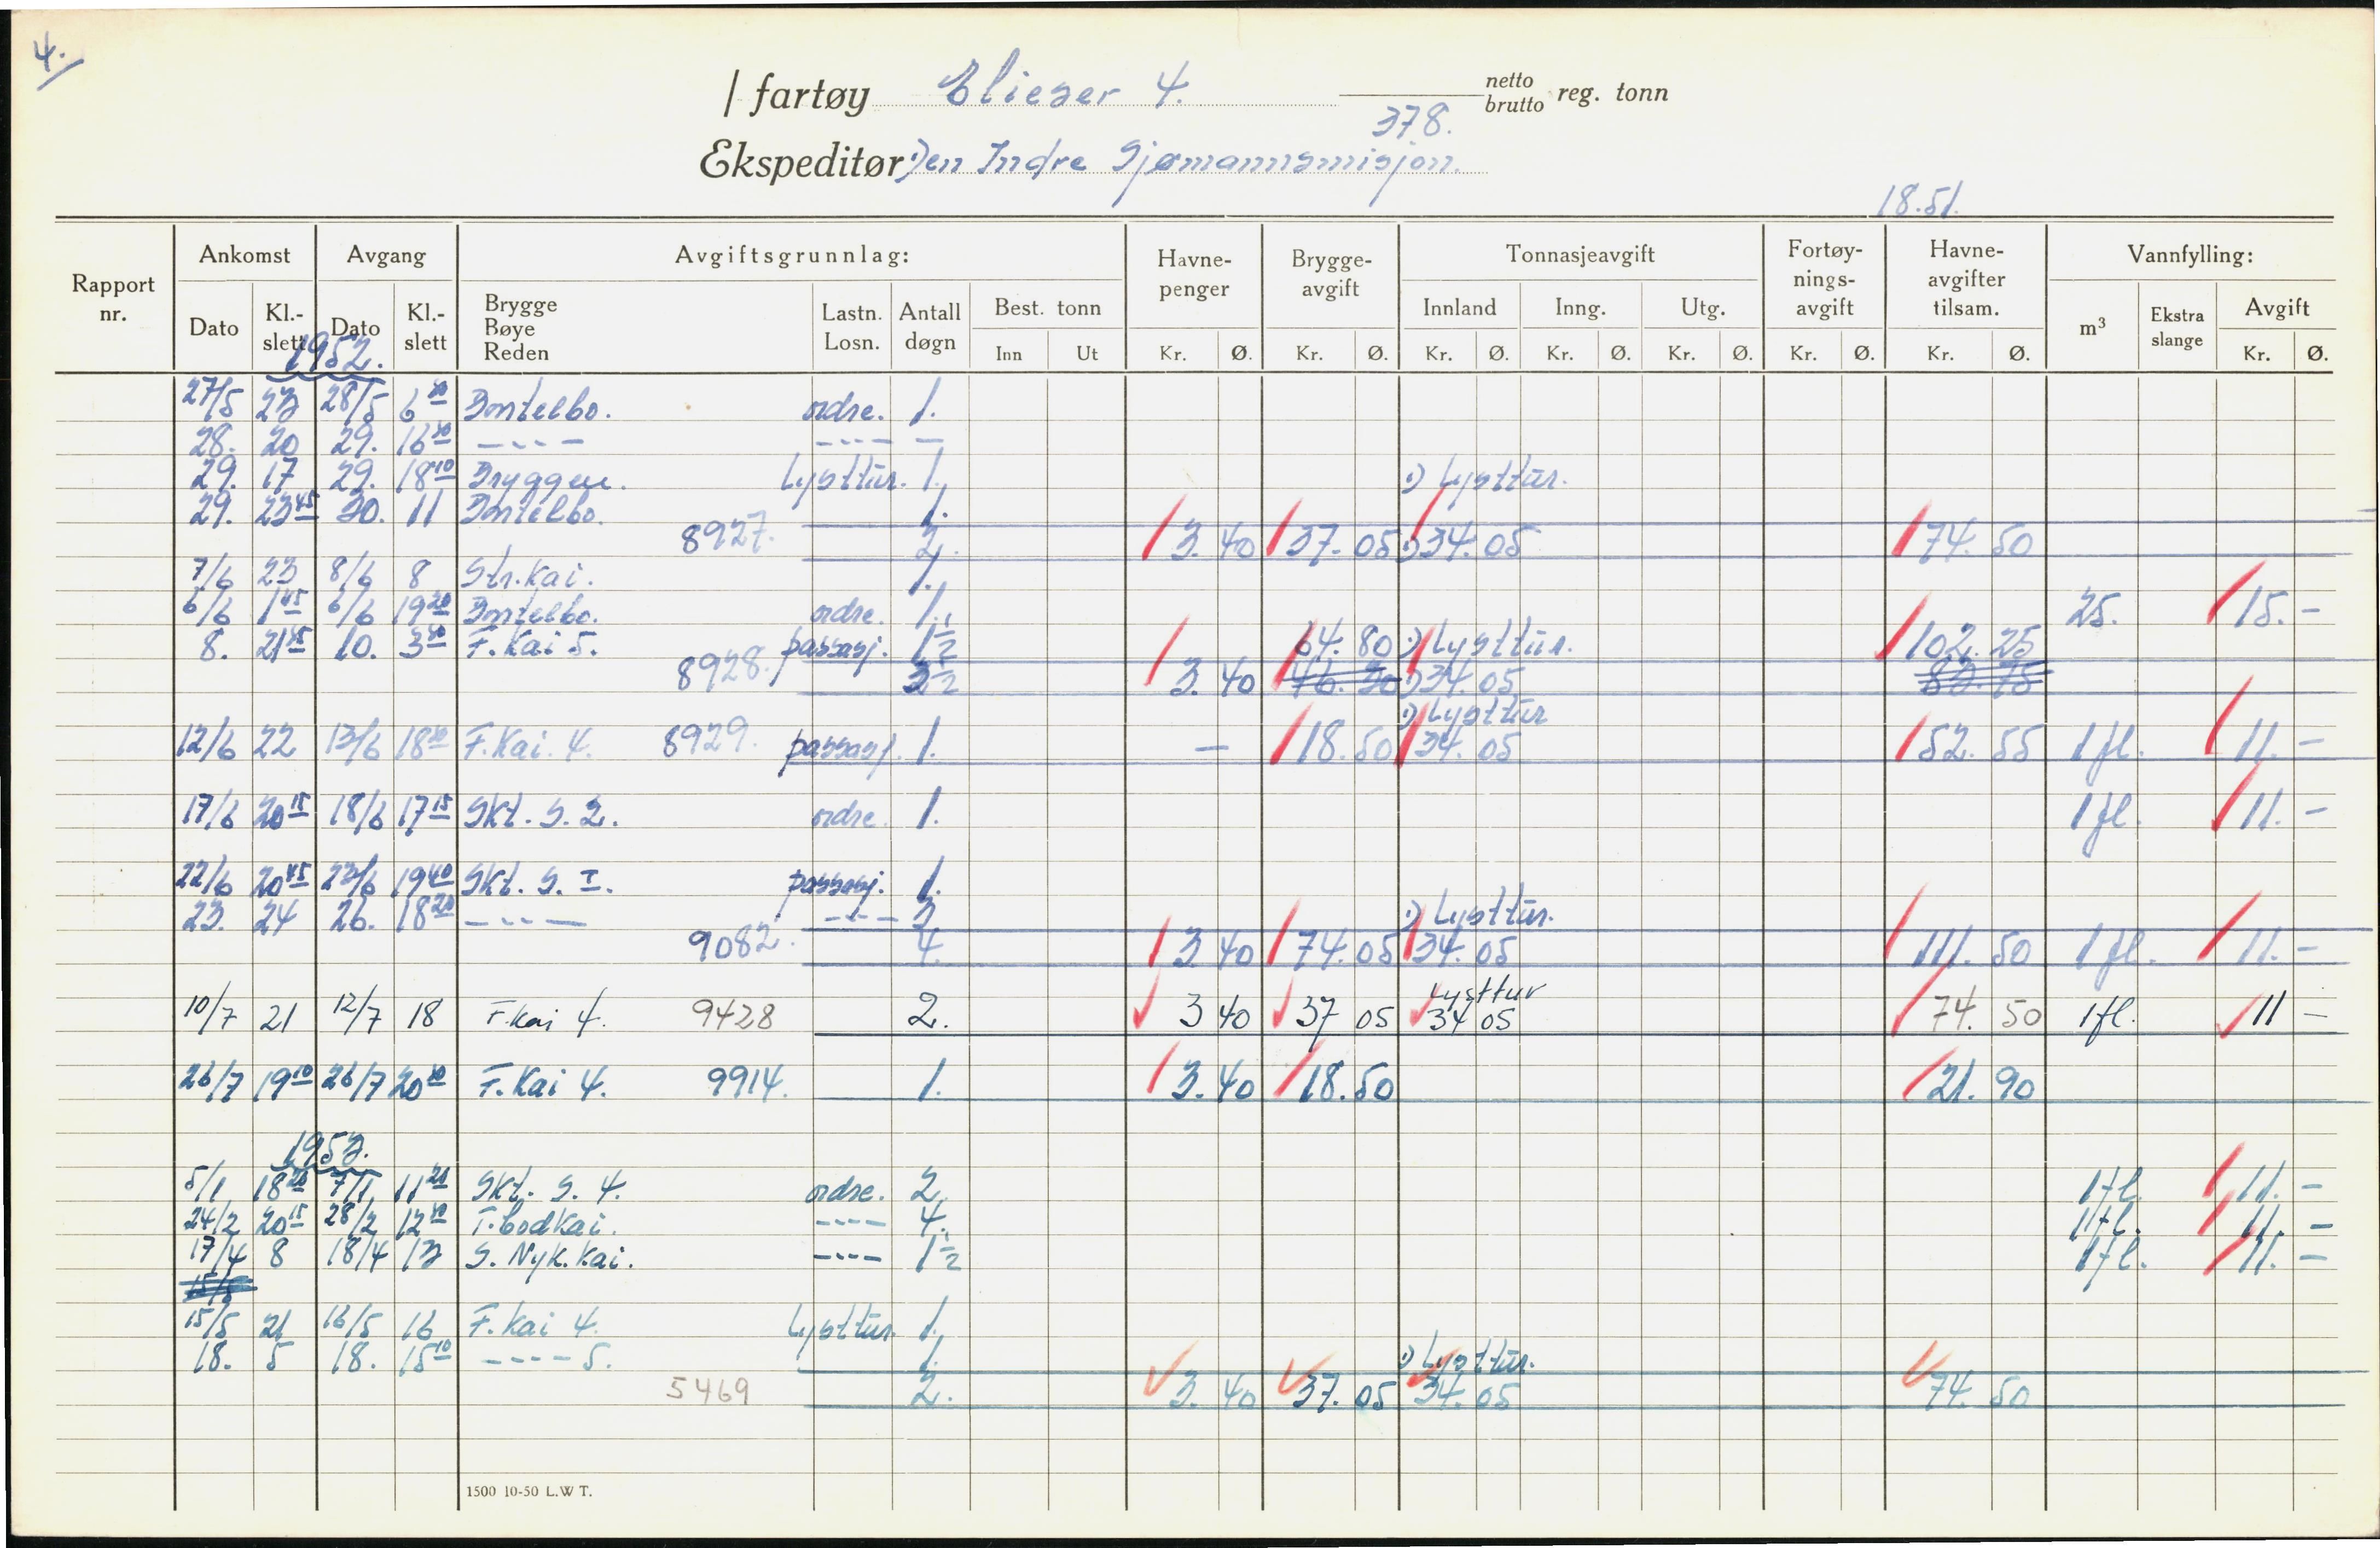 4.
/ fartøy Elieser 4. netto brutto reg. tonn
378.
Ekspeditør Den Indre Sjømannsmisjon.
18.51.
Rapport nr. Ankomst Avgang Avgiftsgrunnlag: Havne-penger Brygge-avgift Tonnasjeavgift Fortøy-nings-avgift Havne-avgifter tilsam. Vannfylling:
Dato Kl.-slett Dato Kl.-slett Brygge Bøye Reden Lastn. Losn. Antall døgn Best. tonn Innland Inng. Utg. m³ Ekstra slange Avgift
Inn Ut Kr. Ø. Kr. Ø. Kr. Ø. Kr. Ø. Kr. Ø. Kr. Ø. Kr. Ø. Kr. Ø.
1952.
27/5 23 28/5 6 Bontelbo. ordre. 1.
28. 20 29. 16 ---- ---- —
29. 17 29. 18 10 Bryggen. Lysttur. 1. 1) Lysttur.
29. 23 45 30. 11 Bontelbo. 1.
8927. 2. 3. 40 37. 05 1) 34. 05 74. 50
7/6 23 8/6 8 Str. Kai. 1.
6/6 1 45 6/6 19 20 Bontelbo. ordre. 1. 25. 15. -
8. 21 45 10. 3 F. Kai 5. passasj. 1½ 64. 80 1) Lysttur. 102. 25
8928. 3½ 3. 40 46. 30 1) 34. 05 83. 75
1) Lysttur
12/6 22 13/6 18 F. Kai. 4. 8929. passasj. 1. — 18. 50 34. 05 52. 55 1 fl. 11. -
17/6 20 15 18/6 17 15 Skt. S. 2. ordre. 1. 1 fl. 11. -
22/6 20 45 23/6 19 40 Skt. S. I. passasj. 1.
23. 24 26. 18 20 ---- ---- 3 1) Lysttur.
9082. 4. 3. 40 74. 05 34. 05 111. 50 1 fl. 11. -
Lysttur
10/7 21 12/7 18 F. kai 4. 9428 2. 3 40 37 05 34 05 74. 50 1 fl. 11 -
26/7 19 10 26/7 20 F. Kai 4. 9914. 1. 3. 40 18. 50 21. 90
1953.
5/1 18 20 7/1 11 20 Skt. S. 4. ordre. 2. 1 fl. 11. -
24/2 20 15 28/2 12 F. bodKai. ---- 4. 1 fl. 11. -
17/4 8 18/4 13 S. Nyk. Kai. ---- 1½ 1 fl. 11. -
15/5 21 16/5 16 F. Kai 4. Lysttur. 1.
18. 5 18. 15 10 ---- 5. 1. 1) Lysttur.
5469 2. 3. 40 37. 05 34. 05 74. 50
1500 10-50 L.W T.